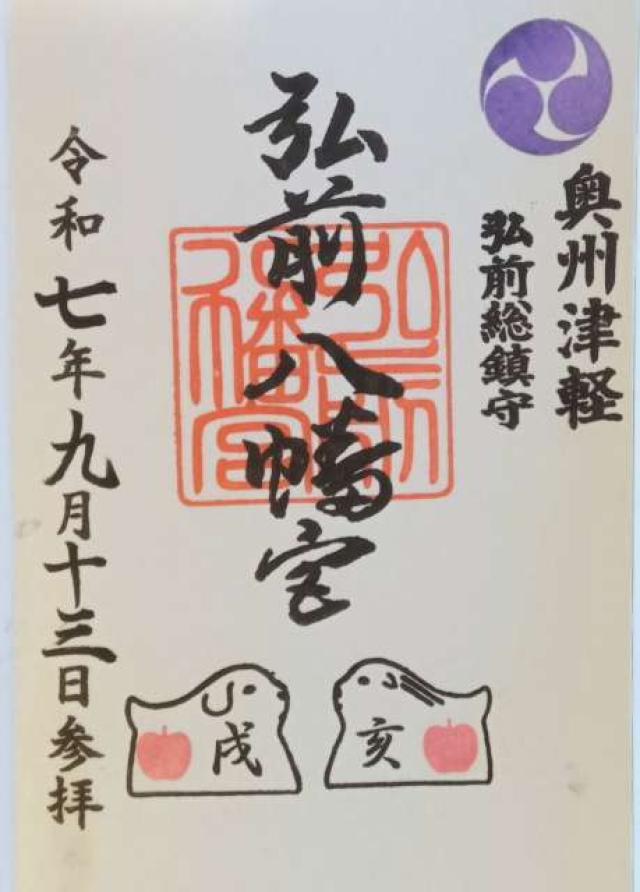 奥州津軽
弘前総鎮守
弘前八幡宮
弘前
八幡宮
令和七年九月十三日参拝
戌
亥